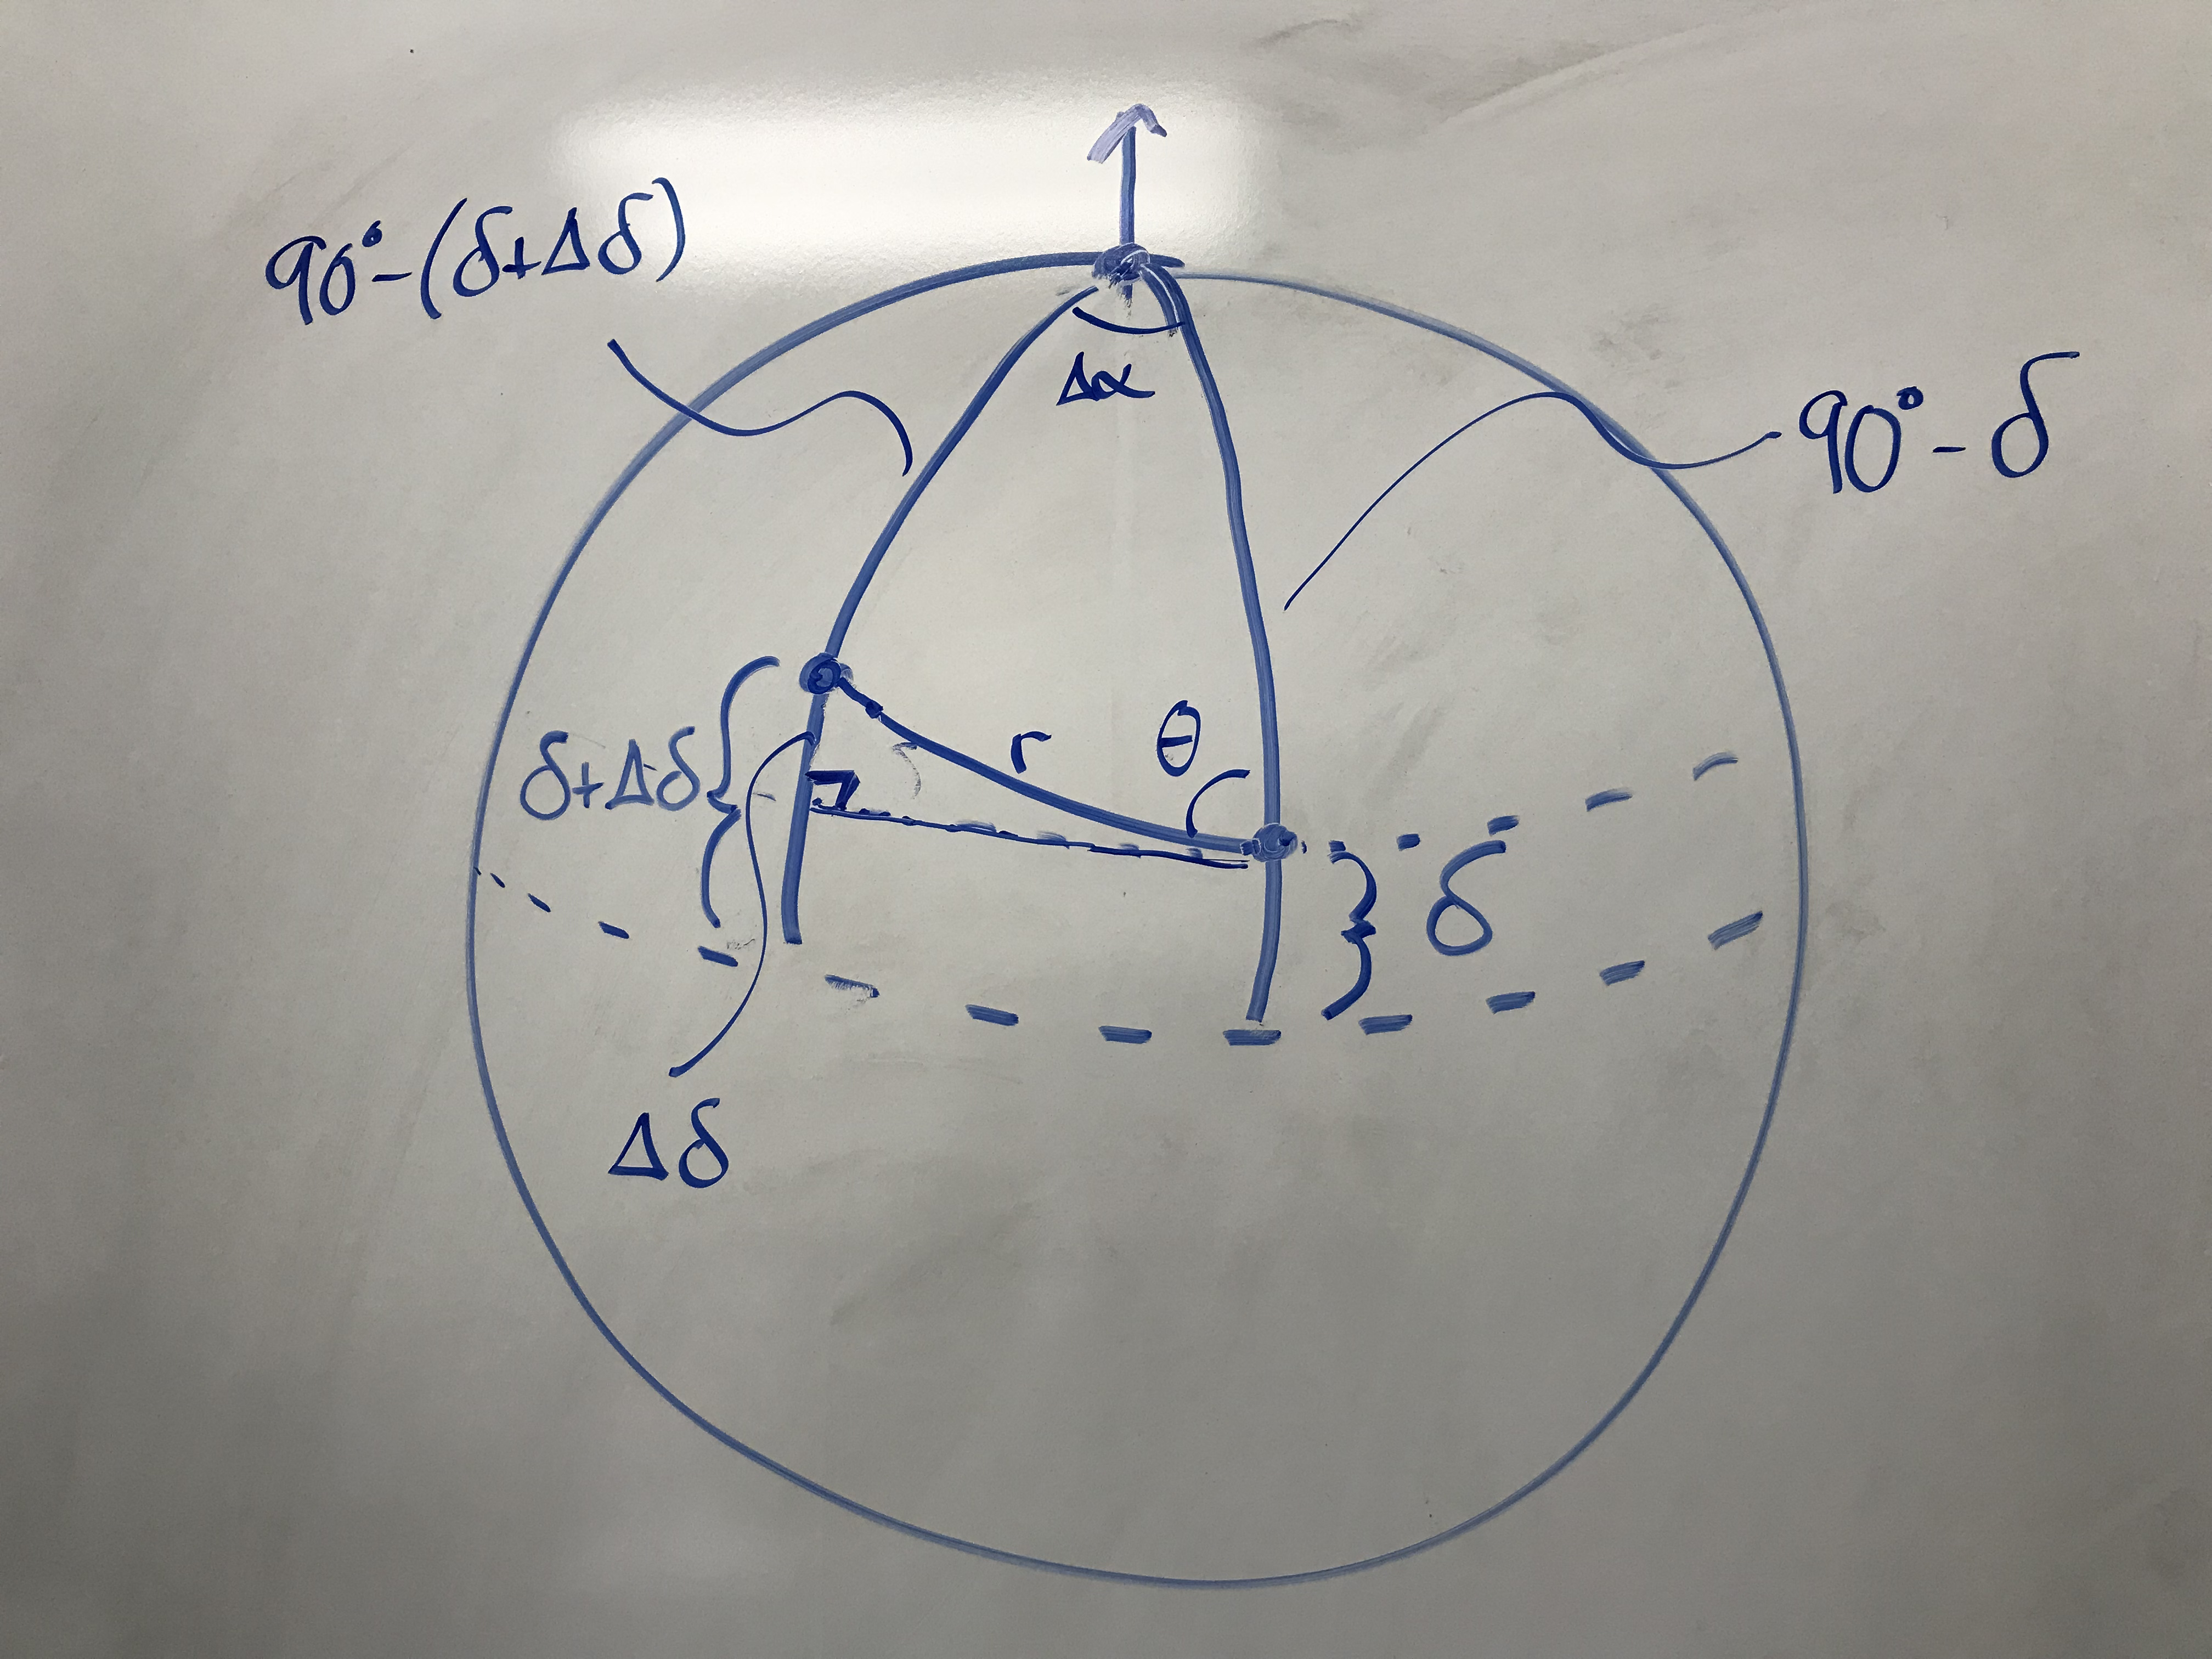 90°-(δ+Δδ)
Δα
90°-δ
θ
r
δ+Δδ
δ
Δδ